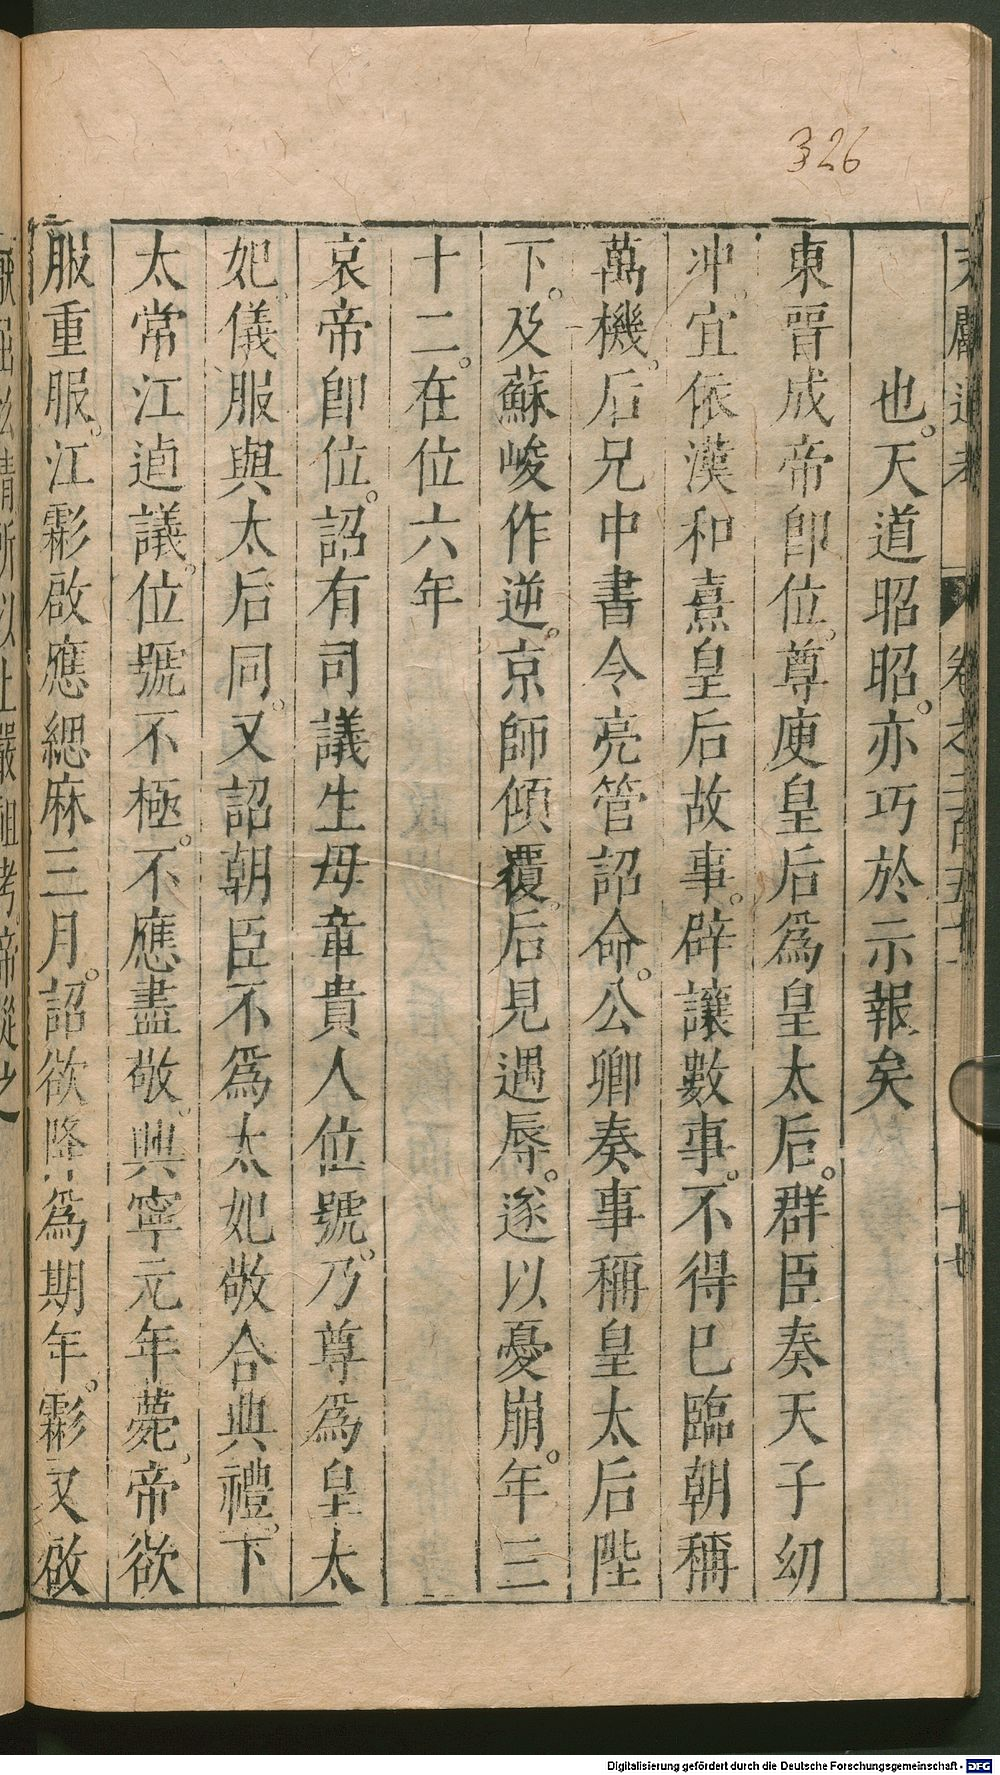 326
文獻通考 卷之二百五十一 十七
也。天道昭昭。亦巧於示報矣
東晉成帝卽位。尊庾皇后爲皇太后。群臣奏天子幼
沖。宜依漢和熹皇后故事。辟讓數事。不得已臨朝稱
萬機。后兄中書令亮管詔命。公卿奏事稱皇太后陛
下。及蘇峻作逆。京師傾覆。后見遇辱。遂以憂崩。年三
十二。在位六年
哀帝卽位。詔有司議生母章貴人位號。乃尊爲皇太
妃。儀服與太后同。又詔朝臣不爲太妃敬合典禮。下
太常江逌議。位號不極。不應盡敬。興寧元年薨。帝欲
服重服。江虨啟應緦麻三月。詔欲降爲期年。虨又啟
厭屈私情所以上嚴祖考。帝從之
Digitalisierung gefördert durch die Deutsche Forschungsgemeinschaft - DFG